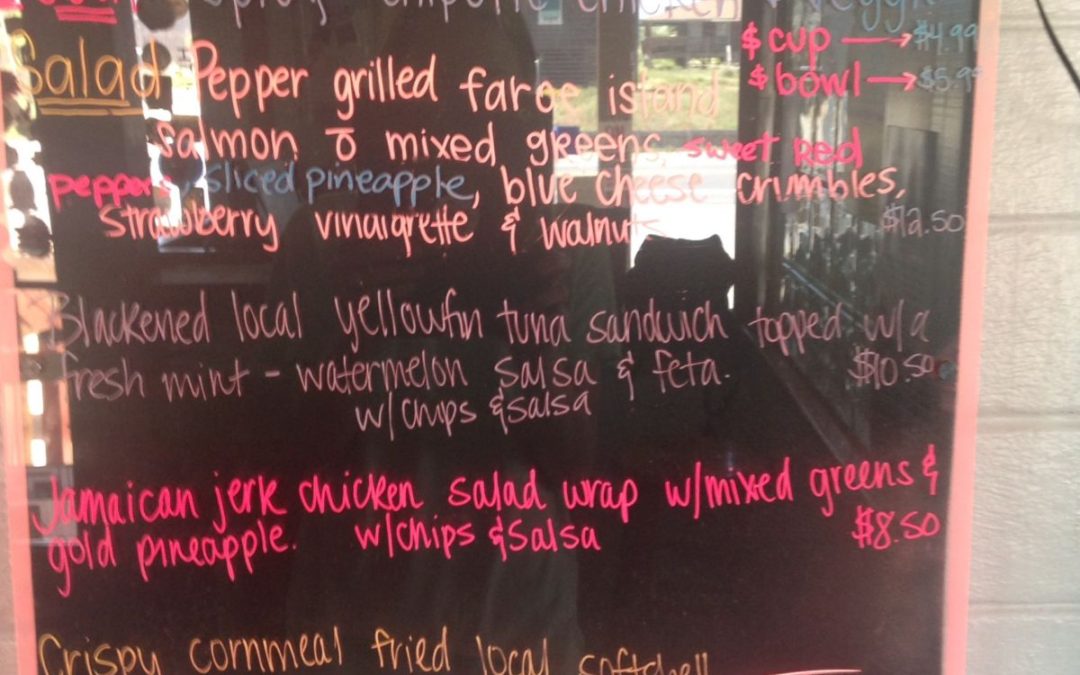 Soup Spicy chipotle chicken & veggie
$ cup → $4.99
$ bowl → $5.99
Salad Pepper grilled faroe island
salmon c̄ mixed greens, sweet red
peppers, sliced pineapple, blue cheese crumbles,
strawberry vinaigrette & walnuts $12.50
Blackened local yellowfin tuna sandwich topped w/a
fresh mint - watermelon salsa & feta. $10.50
w/chips & salsa
Jamaican jerk chicken salad wrap w/mixed greens &
gold pineapple. w/chips & salsa $8.50
Crispy cornmeal fried local softshell